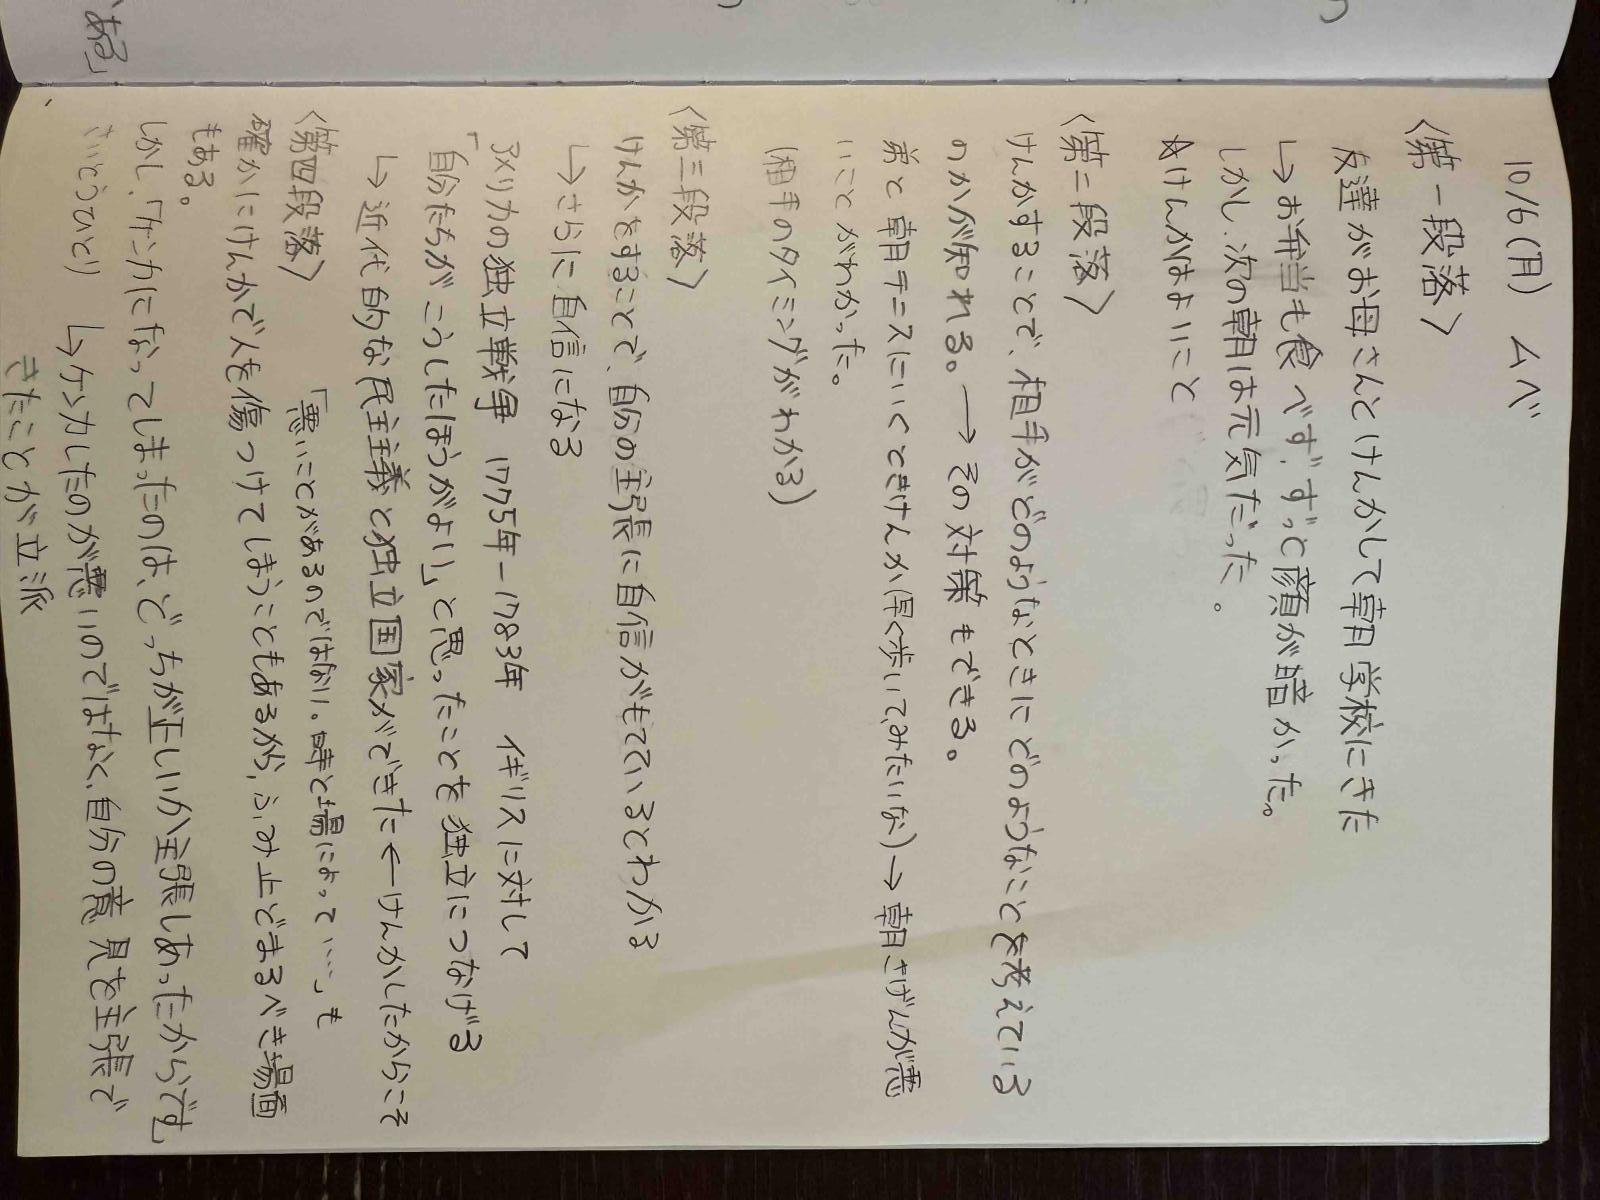 10/6(月) ムベ
〈第一段落〉
友達がお母さんとけんかして朝学校にきた
↳お弁当も食べず、ずっと顔が暗かった。
しかし、次の朝は元気だった。
☆けんかはよいこと
〈第二段落〉
けんかすることで、相手がどのようなときにどのようなことを考えている
のかが知れる。→その対策もできる。
弟と朝テニスにいくときけんか(早く歩いてみたいな)→朝さげんが悪
いことがわかった。
(相手のタイミングがわかる)
〈第三段落〉
けんかをすることで、自分の主張に自信がもてているとわかる
↳さらに自信になる
アメリカの独立戦争 1775年-1783年 イギリスに対して
「自分たちがこうしたほうがよい」と思ったことを独立につなげる
↳近代的な民主主義と独立国家ができた←けんかしたからこそ
〈第四段落〉 「悪いことがあるのではない。時と場によって…」も
確かにけんかで人を傷つけてしまうこともあるが、ふみ止どまるべき場面
もある。
しかし、「ケンカになってしまったのは、どっちが正しいか主張しあったからです」
さいとうひとり ↳ケンカしたのが悪いのではなく、自分の意見を主張で
きたことが立派
ある」